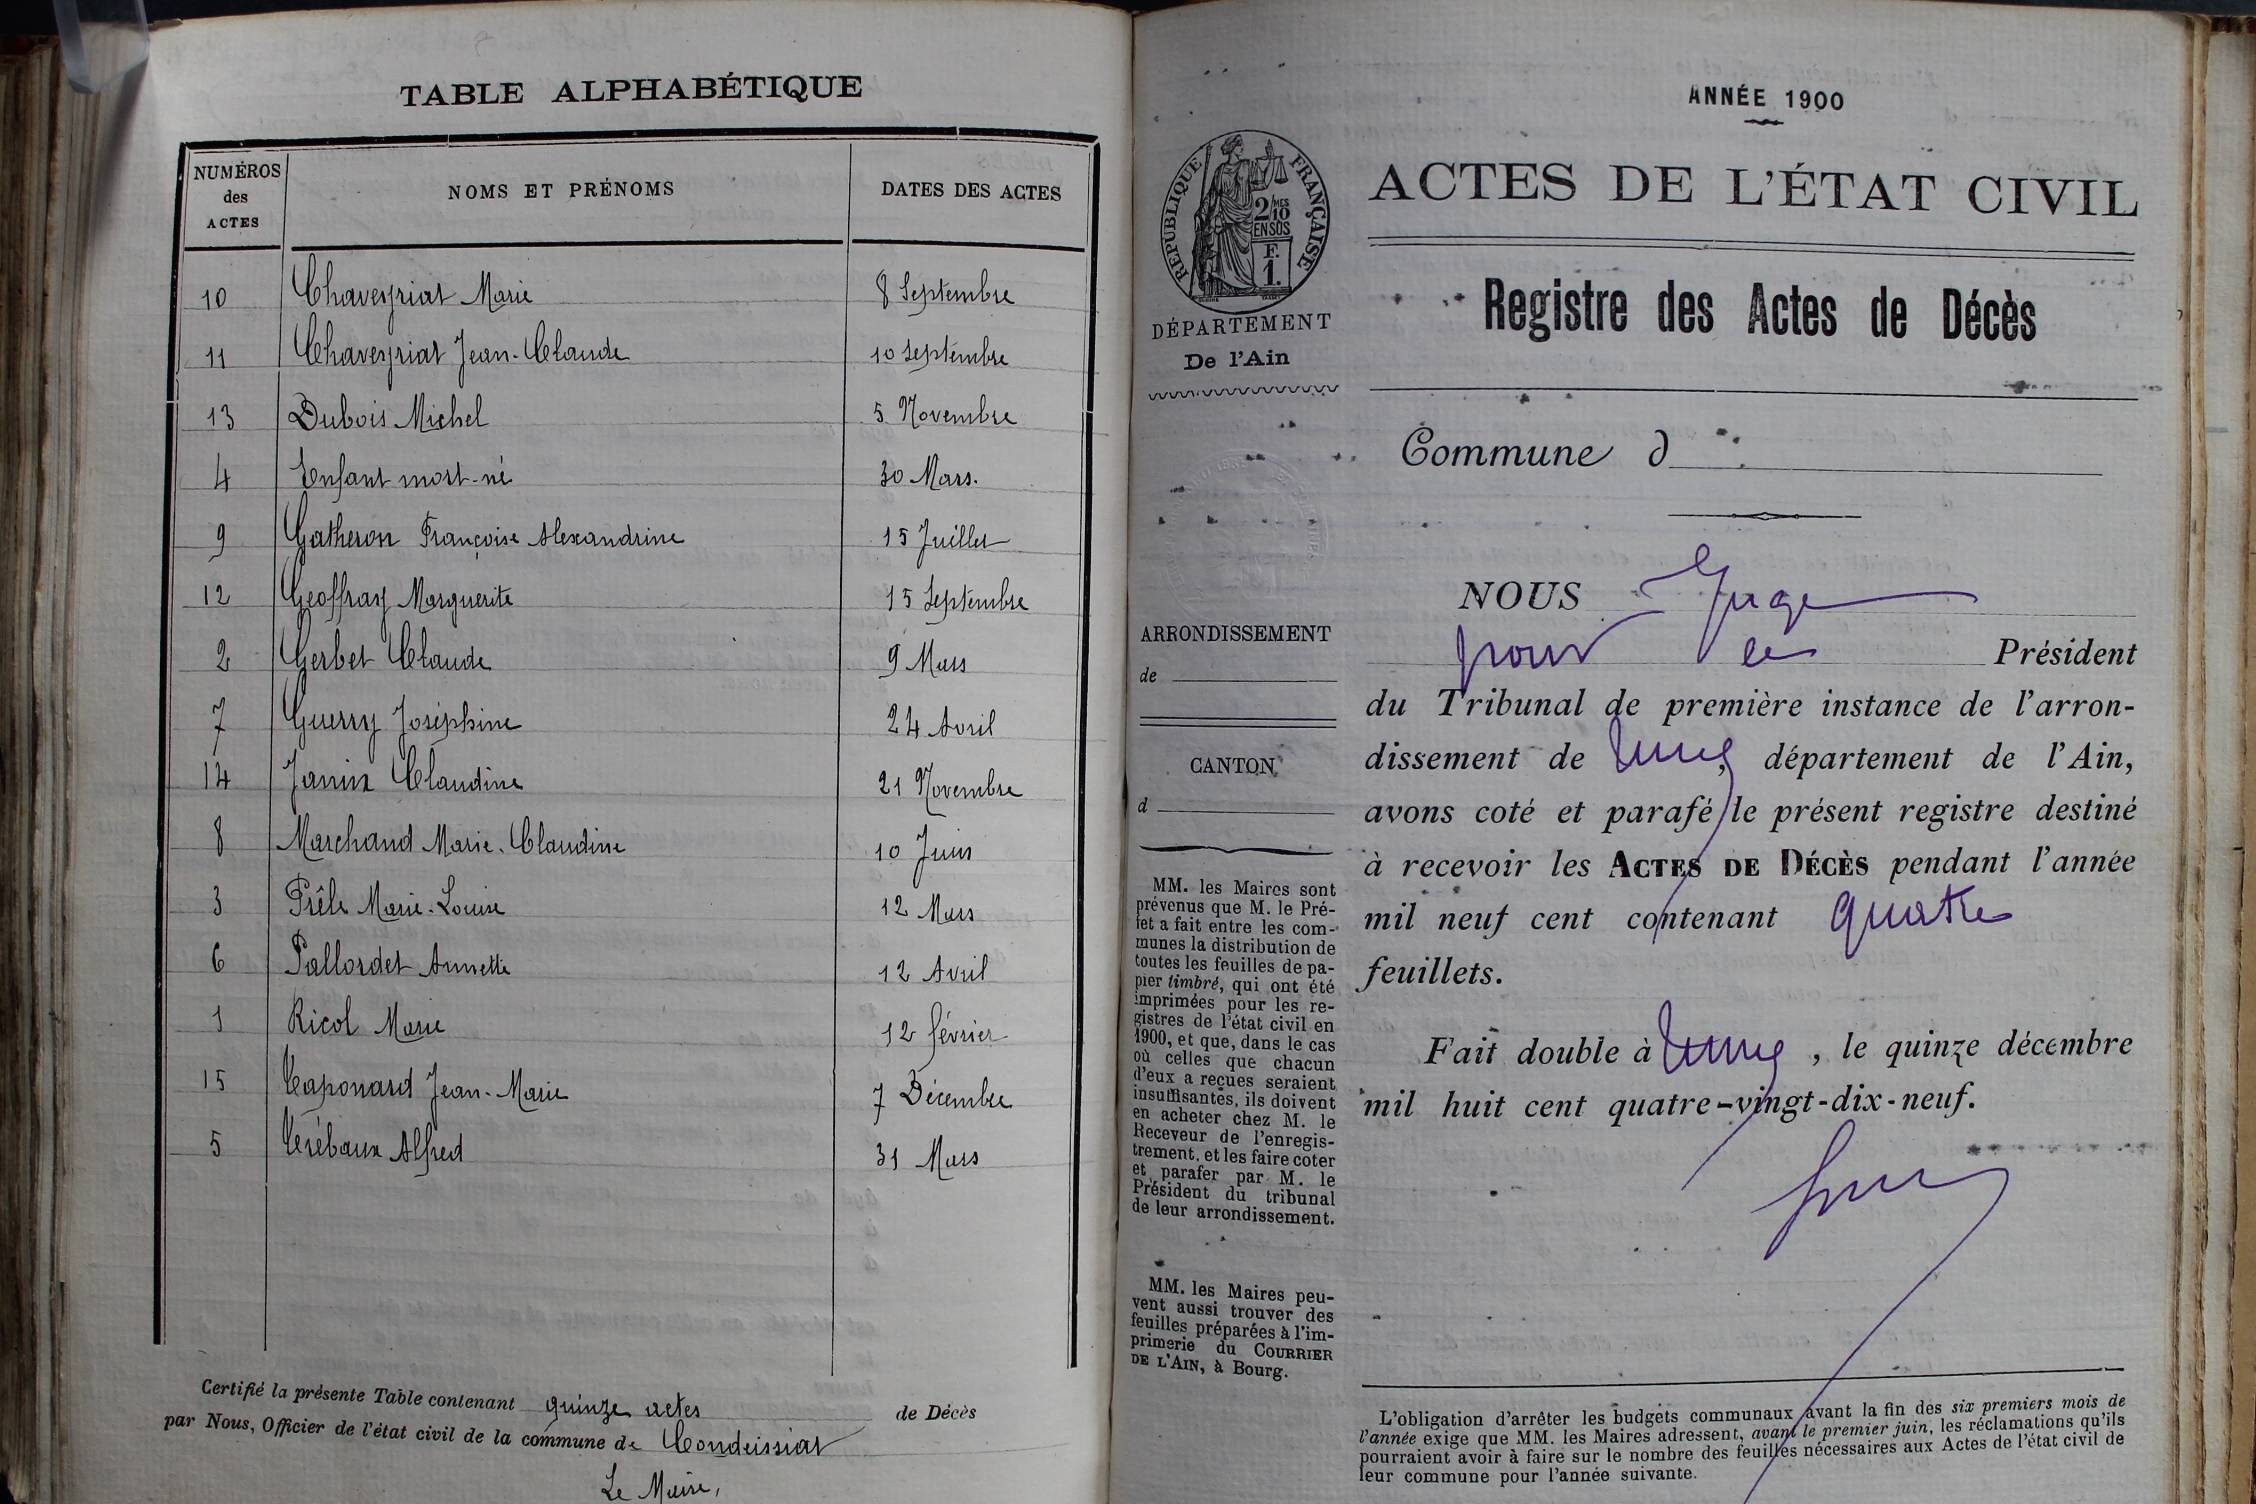 TABLE ALPHABÉTIQUE
NUMÉROS des ACTES NOMS ET PRÉNOMS DATES DES ACTES
10 Chaveyriat Marie 8 Septembre
11 Chaveyriat Jean-Claude 10 Septembre
13 Dubois Michel 5 Novembre
4 Enfant mort-né 30 Mars.
9 Gatheron Françoise Alexandrine 15 Juillet
12 Geoffray Marguerite 15 Septembre
2 Gerbet Claude 9 Mars
7 Guerry Joséphine 24 Avril
14 Janin Claudine 21 Novembre
8 Marchand Marie-Claudine 10 Juin
3 Prêle Marie-Louise 12 Mars
6 Pallordet Annette 12 Avril
1 Ricol Marie 12 février
15 Taponard Jean-Marie 7 Décembre
5 Trébaux Alfred 31 Mars
Certifié la présente Table contenant quinze actes de Décès
par Nous, Officier de l'état civil de la commune de Condeissiat
Le Maire,
ANNÉE 1900
REPUBLIQUE FRANÇAISE
2/10 MES
EN SUS
F.
1.
DÉPARTEMENT
De l'Ain
ARRONDISSEMENT
de
CANTON
d
MM. les Maires sont
prévenus que M. le Pré-
fet a fait entre les com-
munes la distribution de
toutes les feuilles de pa-
pier timbré, qui ont été
imprimées pour les re-
gistres de l'état civil en
1900, et que, dans le cas
où celles que chacun
d'eux a reçues seraient
insuffisantes, ils doivent
en acheter chez M. le
Receveur de l'enregis-
trement, et les faire coter
et parafer par M. le
Président du tribunal
de leur arrondissement.
MM. les Maires peu-
vent aussi trouver des
feuilles préparées à l'im-
primerie du COURRIER
DE L'AIN, à Bourg.
ACTES DE L'ÉTAT CIVIL
Registre des Actes de Décès
Commune d
NOUS Juge
pour le Président
du Tribunal de première instance de l'arron-
dissement de , département de l'Ain,
avons coté et parafé le présent registre destiné
à recevoir les ACTES DE DÉCÈS pendant l'année
mil neuf cent contenant quatre
feuillets.
Fait double à , le quinze décembre
mil huit cent quatre-vingt-dix-neuf.
L'obligation d'arrêter les budgets communaux avant la fin des six premiers mois de
l'année exige que MM. les Maires adressent, avant le premier juin, les réclamations qu'ils
pourraient avoir à faire sur le nombre des feuilles nécessaires aux Actes de l'état civil de
leur commune pour l'année suivante.